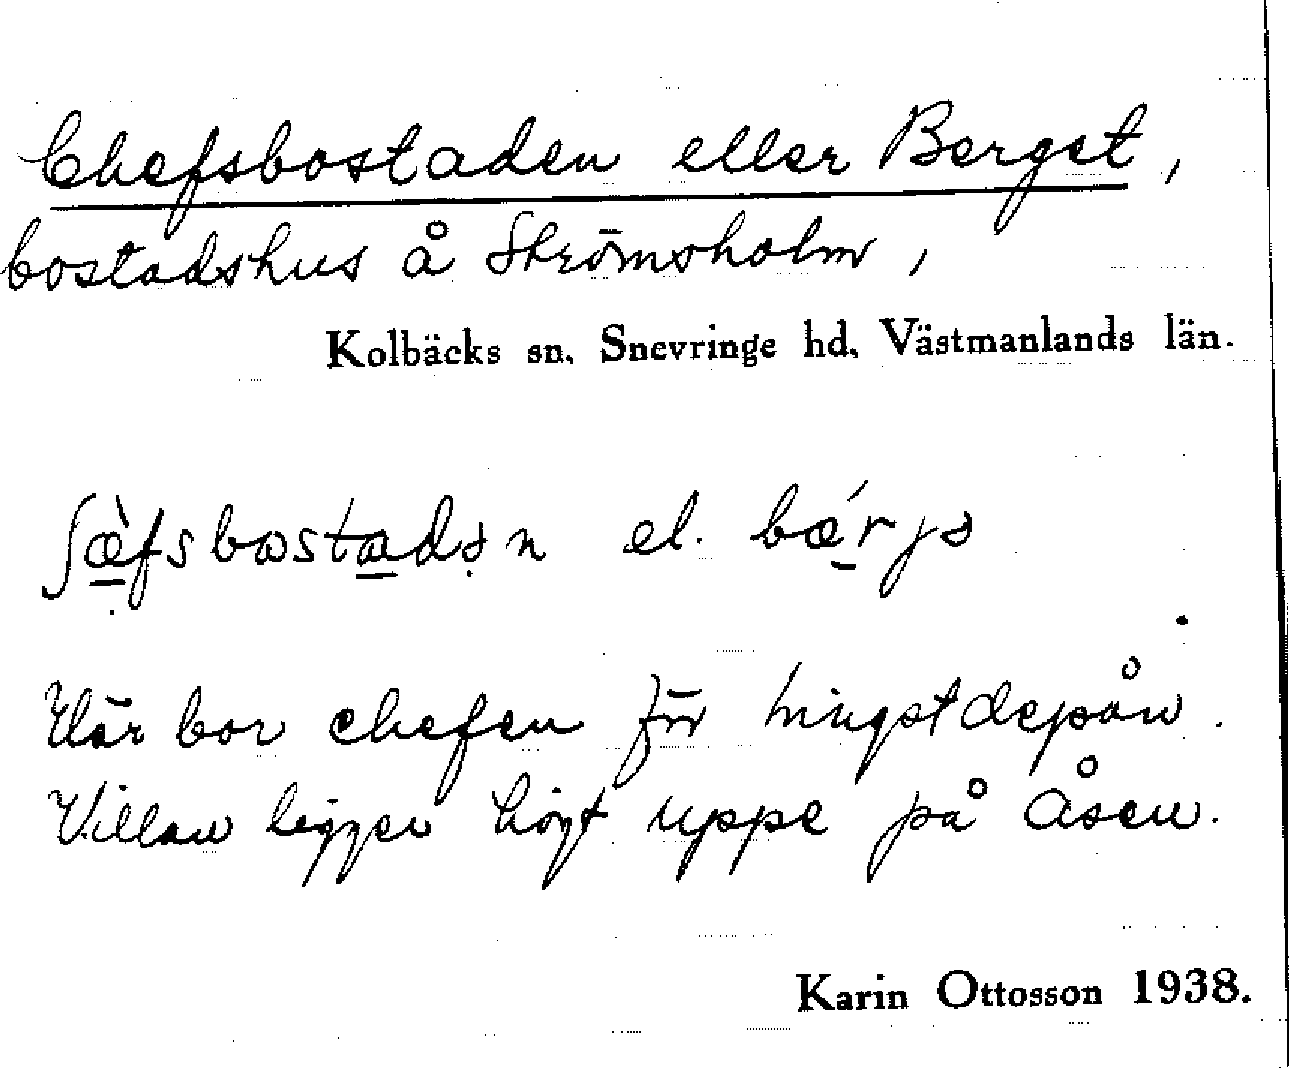 Chefsbostaden eller Berget,
bostadshus å Strömsholm,
Kolbäcks sn. Snevringe hd. Västmanlands län.
ʃæ̀fsbostadən el. bǽrjə
Här bor chefen för hingstdepån.
Villan ligger högt uppe på åsen.
Karin Ottosson 1938.